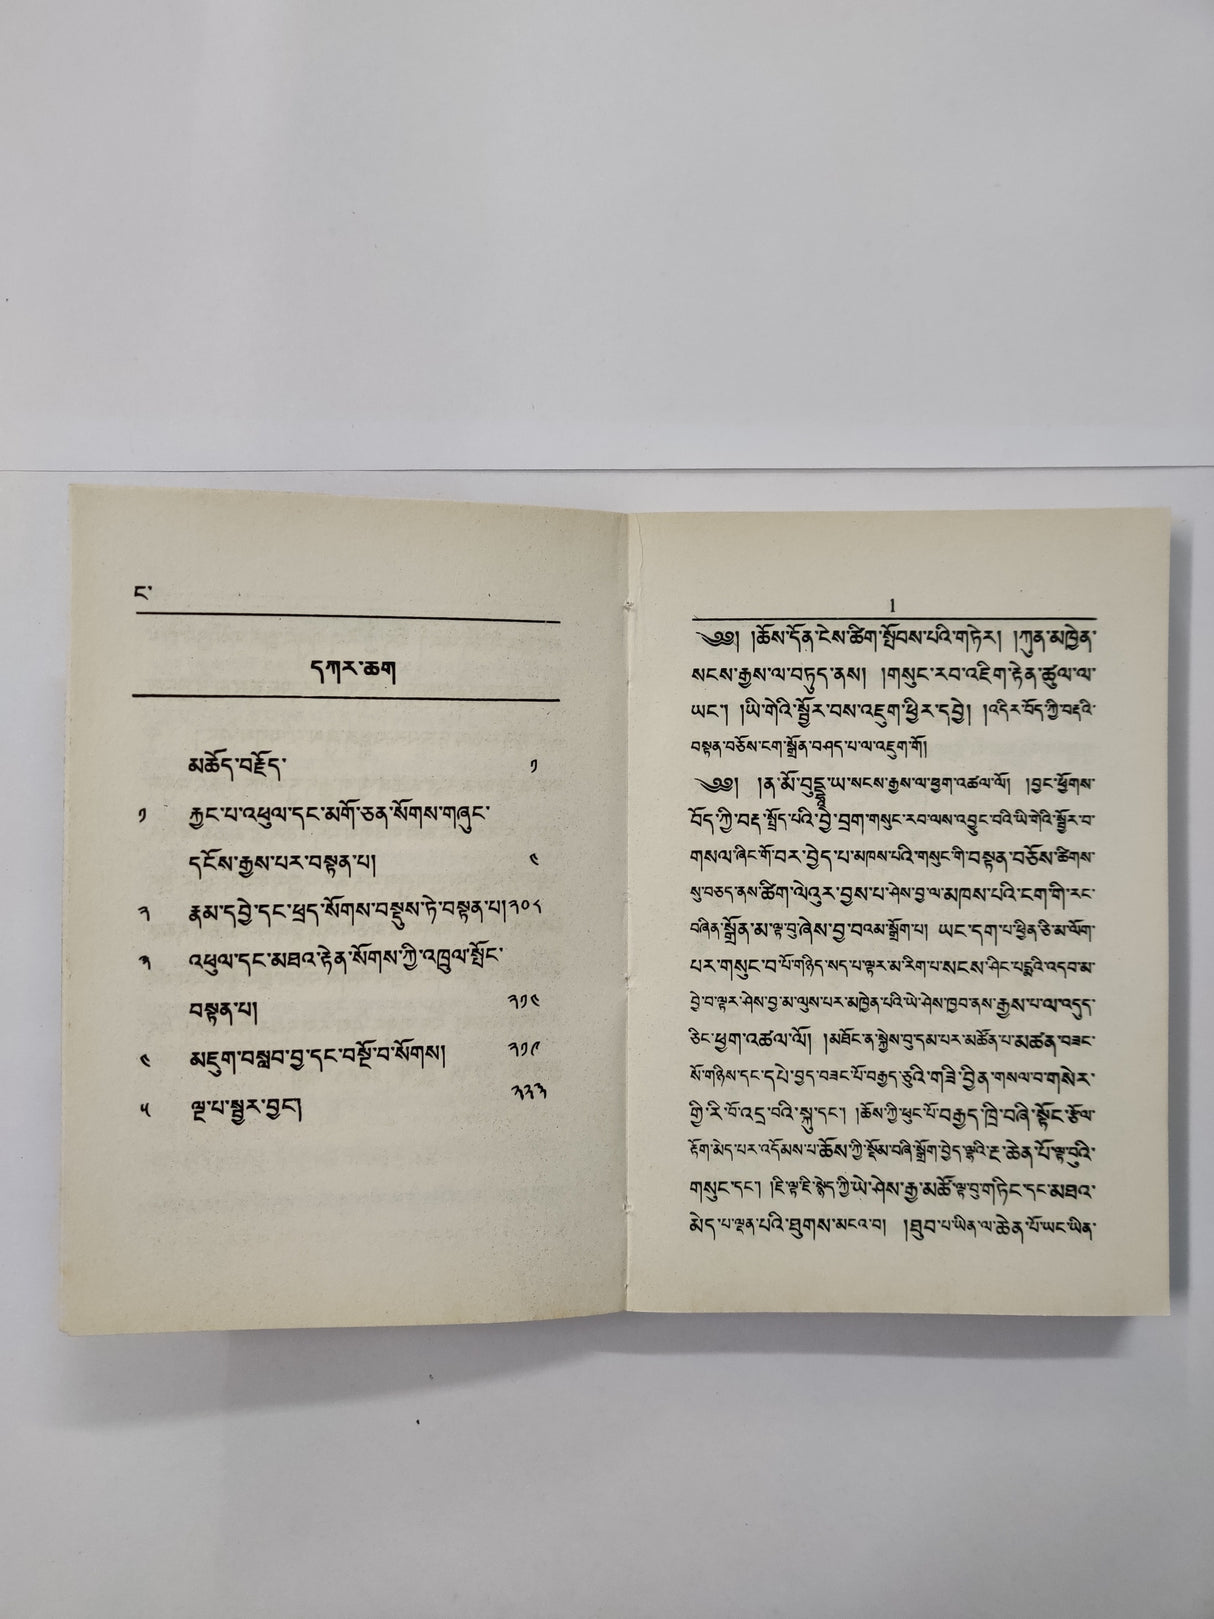 ང་
དཀར་ཆག
མཆོད་བརྗོད་ ༡
༡ རྐྱང་པ་འཕུལ་དང་མགོ་ཅན་སོགས་གཞུང་
དངོས་རྒྱས་པར་བསྟན་པ། ༤
༢ རྣམ་དབྱེ་དང་ཕྲད་སོགས་བསྡུས་ཏེ་བསྟན་པ།༢༠༨
༣ འཕུལ་དང་མཐའ་རྟེན་སོགས་ཀྱི་འཁྲུལ་སྤོང་
བསྟན་པ། ༢༡༤
༤ མཇུག་བསླབ་བྱ་དང་བསྔོ་བ་སོགས། ༢༡༩
༥ ལྔ་པ་སྦྱར་བྱང། ༢༢༣
1
༄༅། །ཆོས་དོན་ངེས་ཚིག་སྤོབས་པའི་གཏེར། །ཀུན་མཁྱེན་
སངས་རྒྱས་ལ་བཏུད་ནས། །གསུང་རབ་འཇིག་རྟེན་ཚུལ་ལ་
ཡང་། །ཡི་གེའི་སྦྱོར་བས་འཇུག་ཕྱིར་དབྱེ། །འདིར་བོད་ཀྱི་བརྡའི་
བསྟན་བཅོས་ངག་སྒྲོན་བཤད་པ་ལ་འཇུག་གོ།
༄༅། །ན་མོ་བུདྡྷཱ་ཡ་སངས་རྒྱས་ལ་ཕྱག་འཚལ་ལོ། །བྱང་ཕྱོགས་
བོད་ཀྱི་བརྡ་སྤྲོད་པའི་བྱེ་བྲག་གསུང་རབ་ལས་འབྱུང་བའི་ཡི་གེའི་སྦྱོར་བ་
གསལ་ཞིང་གོ་བར་བྱེད་པ་མཁས་པའི་གསུང་གི་བསྟན་བཅོས་ཚིགས་
སུ་བཅད་ནས་ཚིག་ལེའུར་བྱས་པ་ཤེས་བྱ་ལ་མཁས་པའི་ངག་གི་རང་
བཞིན་སྒྲོན་མ་ལྟ་བུ་ཞེས་བྱ་བའམ་སྒྲོག་པ། ཡང་དག་པ་ཕྱིན་ཅི་མ་ལོག་
པར་གསུང་བ་པོ་གཉིད་སད་པ་ལྟར་མ་རིག་པ་སངས་ཤིང་པདྨའི་འདབ་མ་
བྱེ་བ་ལྟར་ཤེས་བྱ་མ་ལུས་པར་མཁྱེན་པའི་ཡེ་ཤེས་ཁྱབ་ནས་རྒྱས་པ་ལ་འདུད་
ཅིང་ཕྱག་འཚལ་ལོ། །མཐོང་ན་སྐྱེས་བུ་དམ་པར་མཚོན་པ་མཚན་བཟང་
སོ་གཉིས་དང་དཔེ་བྱད་བཟང་པོ་བརྒྱད་ཅུའི་གཟི་བྱིན་གསལ་བ་གསེར་
གྱི་རི་བོ་འདྲ་བའི་སྐུ་དང་། །ཆོས་ཀྱི་ཕུང་པོ་བརྒྱད་ཁྲི་བཞི་སྟོང་རྩོལ་
རྟོག་མེད་པར་འདོམས་པ་ཆོས་ཀྱི་སྡོམ་བཞི་སྒྲོག་བྱེད་ལྷའི་རྔ་ཆེན་པོ་ལྟ་བུའི་
གསུང་དང་། །ཇི་ལྟ་ཇི་སྙེད་ཀྱི་ཡེ་ཤེས་རྒྱ་མཚོ་ལྟ་བུ་གཏིང་དང་མཐའ་
མེད་པ་ལྡན་པའི་ཐུགས་མངའ་བ། །ཐུབ་པ་ཡིན་ལ་ཆེན་པོ་ཡང་ཡིན་